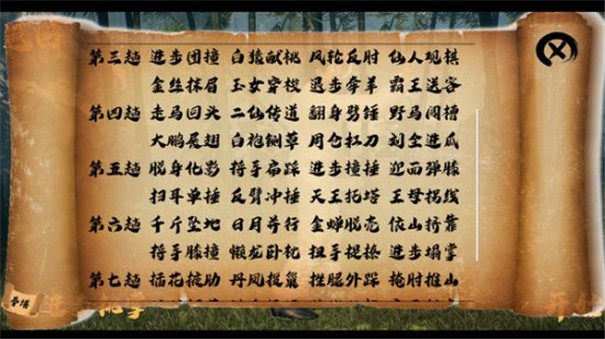 第三趟 进步团撞 白猿献桃 风轮反肘 仙人观棋
金丝抹眉 玉女穿梭 退步牵羊 霸王送客
第四趟 走马回头 二仙传道 翻身劈锤 野马闯槽
大鹏展翅 白袍铡草 周仓扛刀 刘全进瓜
第五趟 脱身化影 捋手扁踩 进步撞捶 迎面弹膝
扫耳单捶 反臂冲捶 天王托塔 王母拐线
第六趟 千斤坠地 日月并行 金蝉脱壳 依山挤靠
捋手膝撞 懒龙卧枕 扭手提捺 进步塌掌
第七趟 插花掖肋 丹凤捉巢 挫腿外踩 掩肘推山